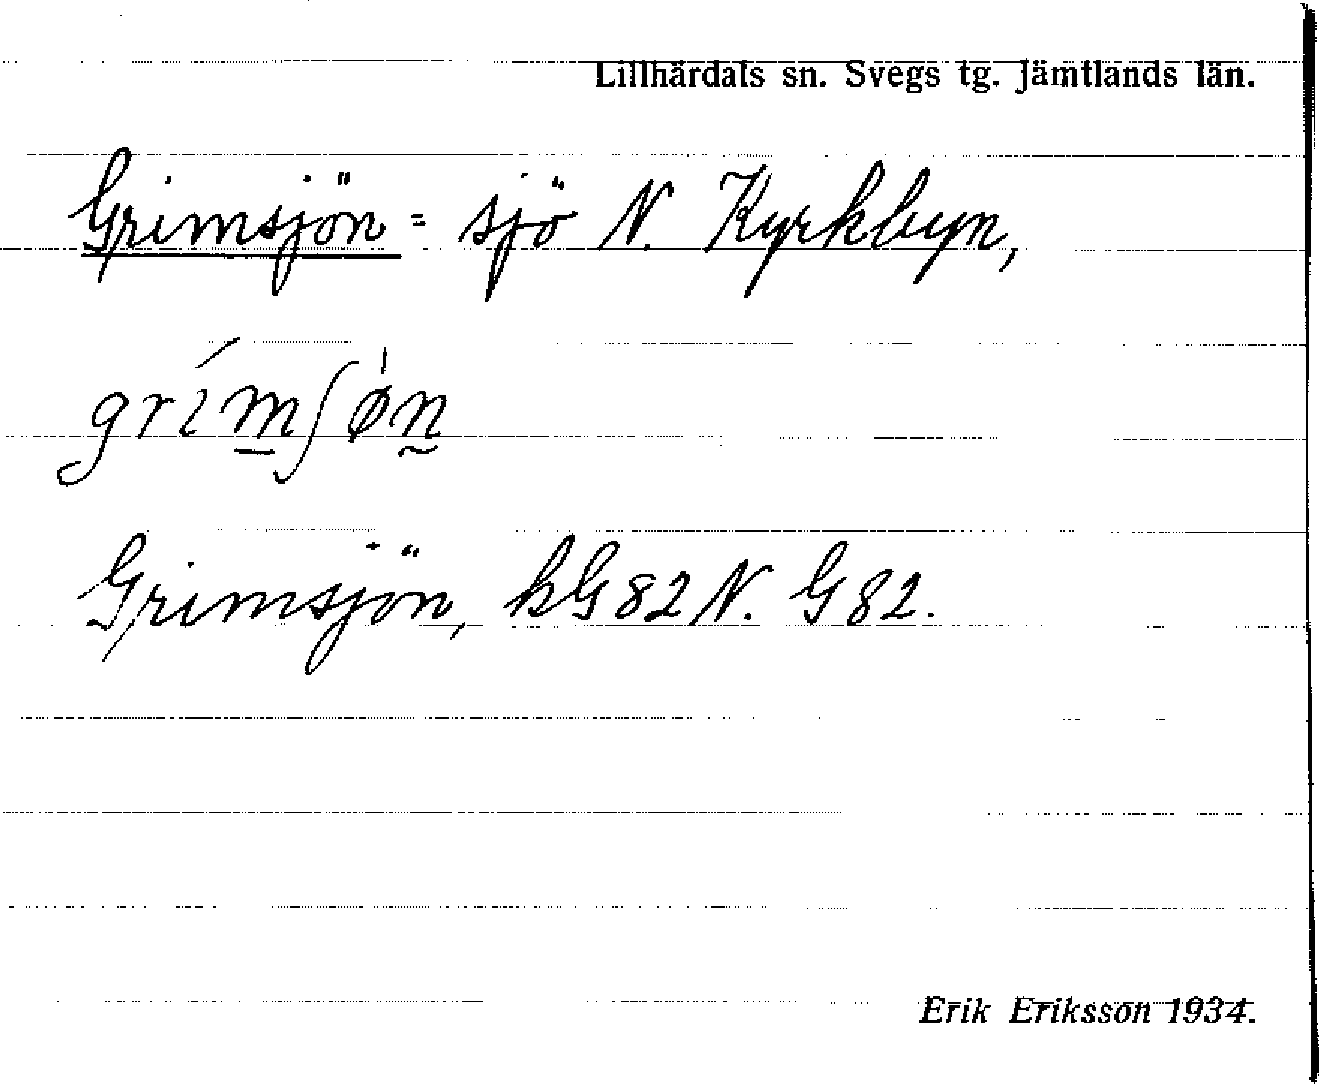 Lillhärdals sn. Svegs tg. Jämtlands län.
Grimsjön = sjö N. Kyrkbyn,
grı́m̲ʃø̍n̰
Grimsjön, kG82 N. G82.
Erik Eriksson 1934.